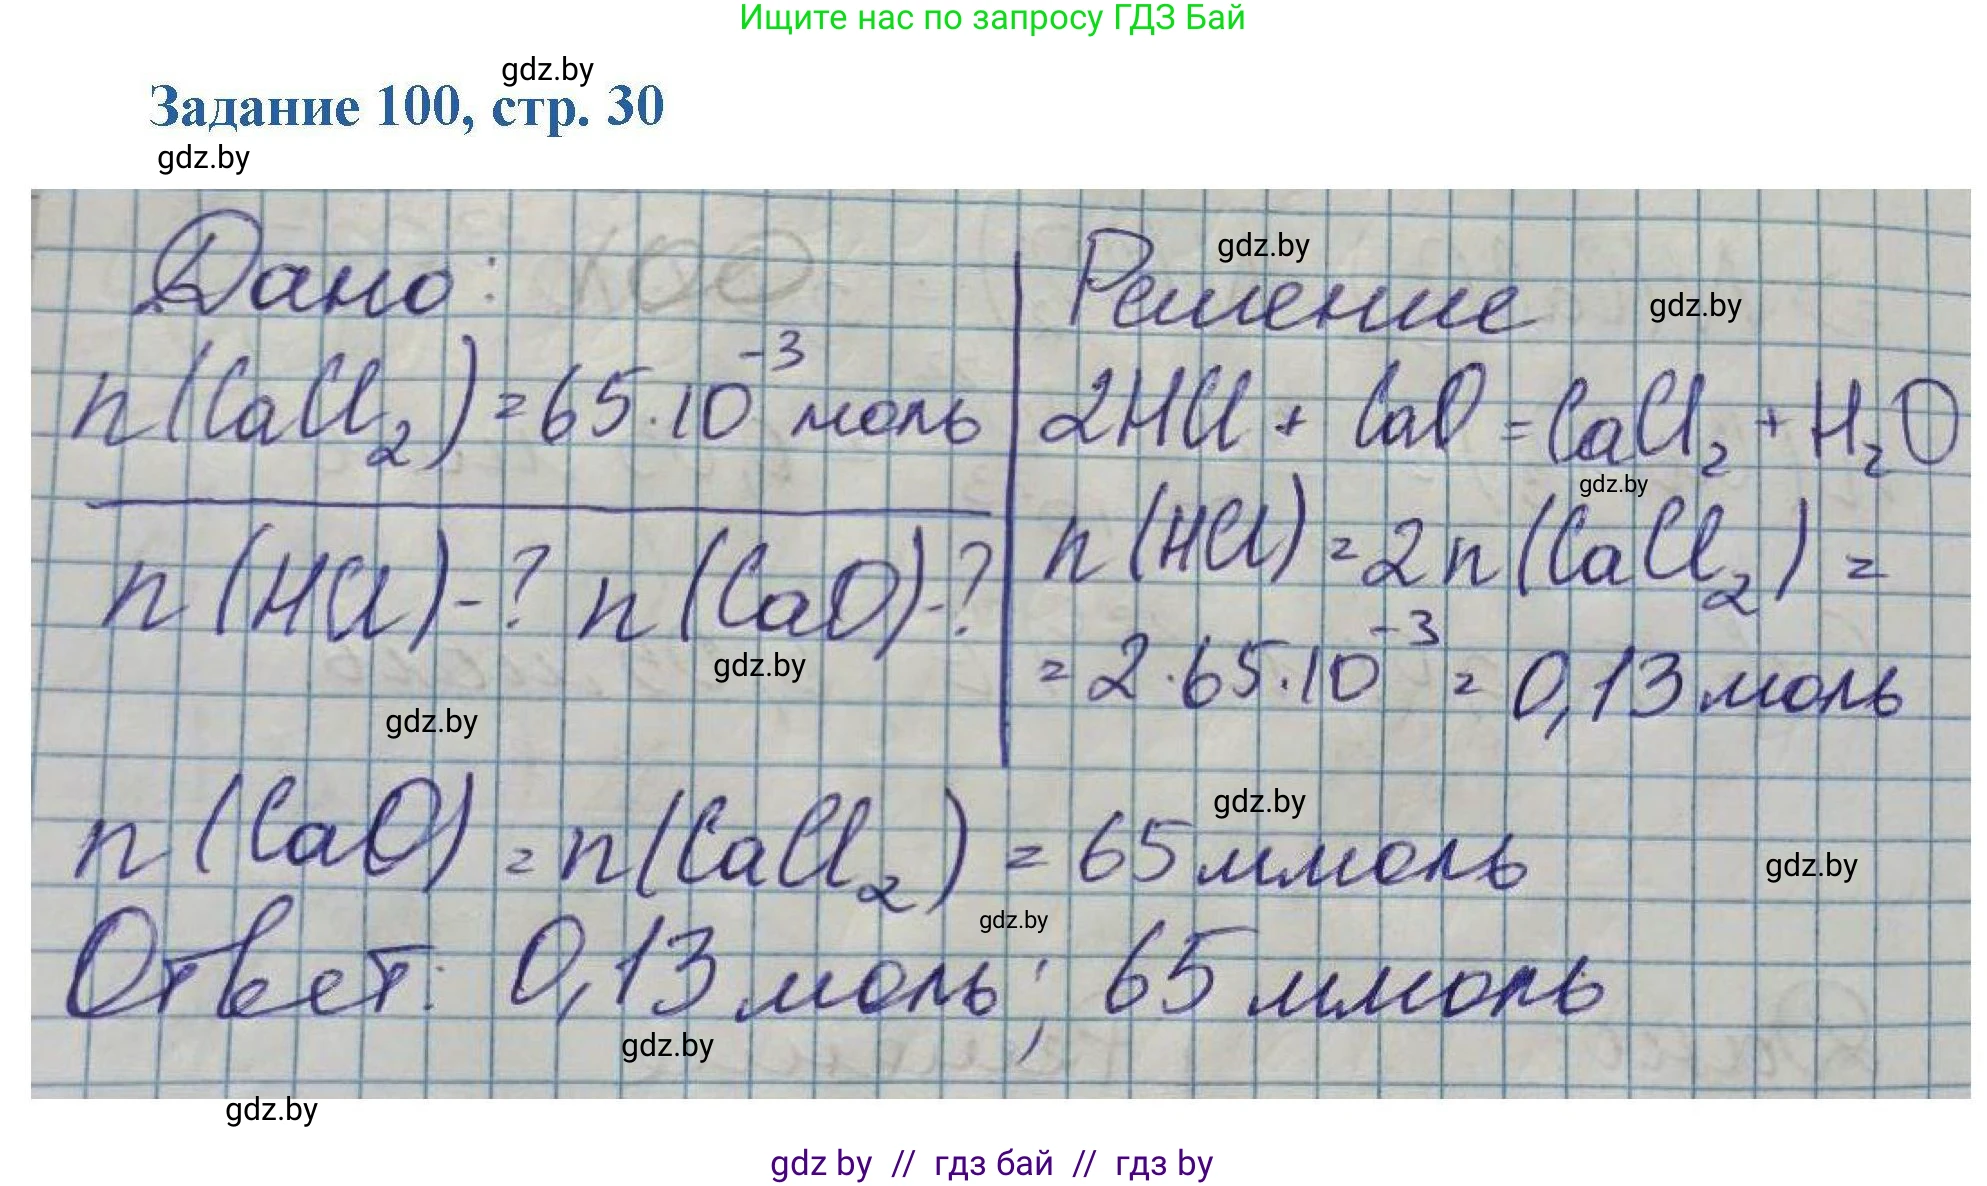 Ищите нас по запросу ГДЗ Бай
gdz.by
Задание 100, стр. 30
gdz.by
Дано: 100
n(CaCl₂) = 65·10⁻³ моль
n(HCl)-? n(CaO)-?
gdz.by
gdz.by
Решение
gdz.by
gdz.by
2HCl + CaO = CaCl₂ + H₂O
gdz.by
n(HCl) = 2n(CaCl₂) =
= 2·65·10⁻³ = 0,13 моль
gdz.by
gdz.by
n(CaO) = n(CaCl₂) = 65 ммоль
gdz.by
Ответ: 0,13 моль; 65 ммоль
gdz.by
gdz.by
gdz by // гдз бай // гдз by